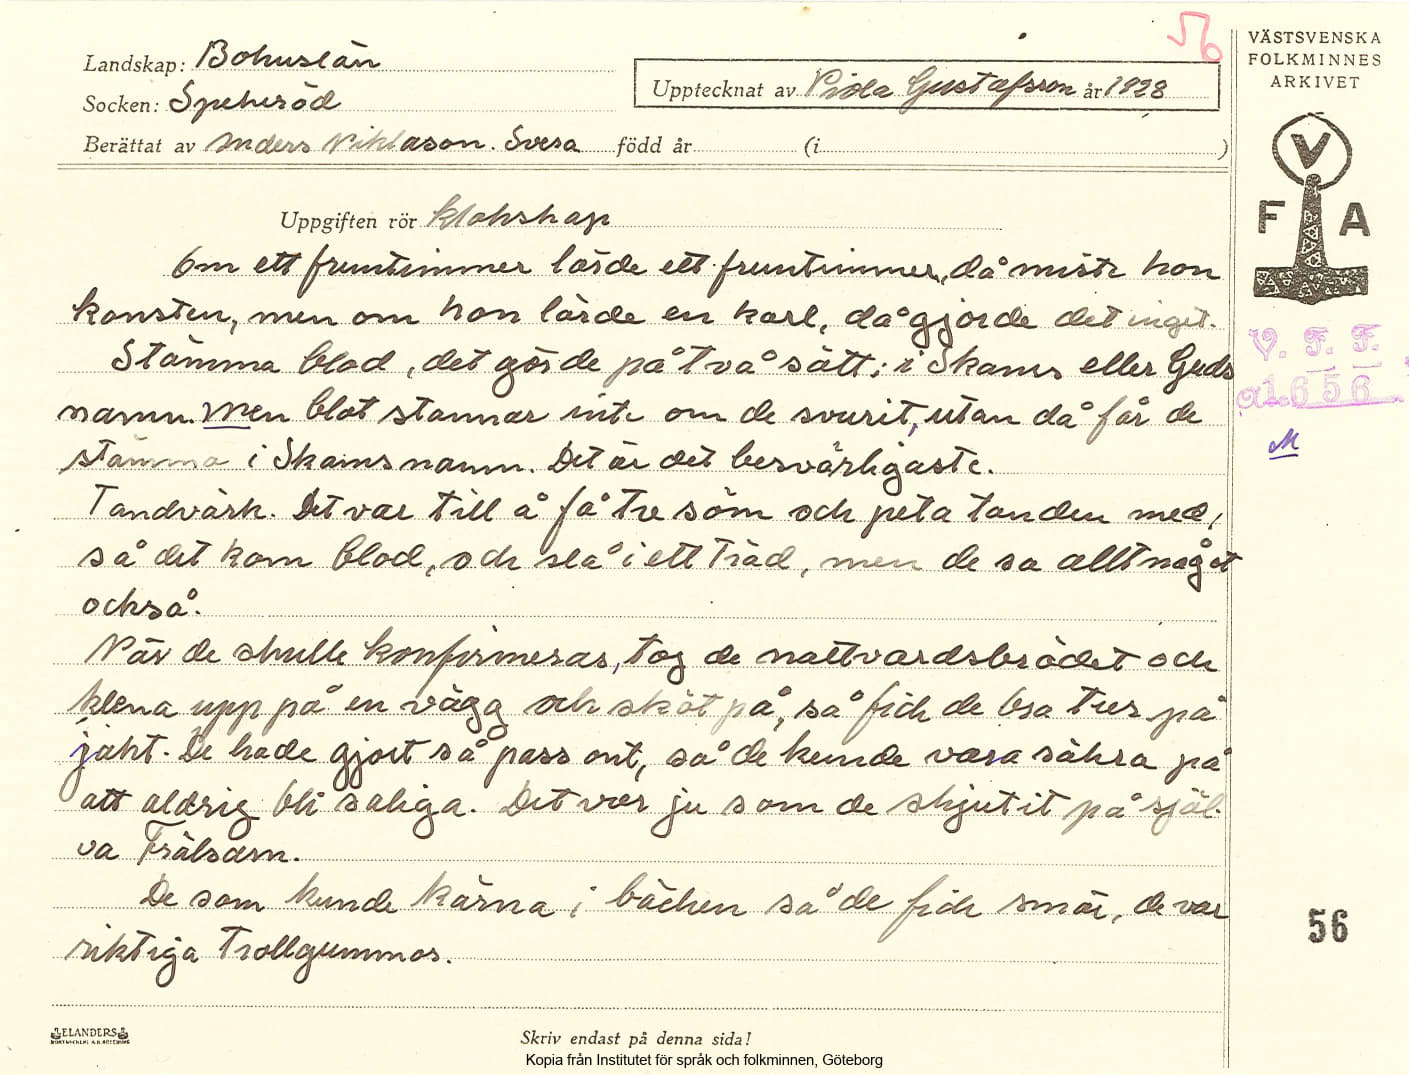 56
VÄSTSVENSKA
FOLKMINNES
ARKIVET
Landskap: Bohuslän
Socken: Spekeröd
Upptecknat av Viola Gustafsson år 1928
Berättat av Anders Niklason. Svera född år (i )
V
F A
Uppgiften rör klokskap
Om ett fruntimmer lärde ett fruntimmer, då miste hon
konsten, men om hon lärde en karl, då gjorde det inget.
Stämma blod, det görde på två sätt; i Skams eller Guds
namn. Men blot stannar inte om de svurit, utan då får de
stämma i Skams namn. Det är det besvärligaste.
Tandvärk. Det var till å få tre söm och peta tanden med,
så det kom blod, och slå i ett träd, men de sa allt något
också.
När de skulle konfirmeras, tog de nattvardsbrödet och
klena upp på en vägg och sköt på, så fick de bra tur på
jakt. De hade gjort så pass ont, så de kunde vara säkra på
att aldrig bli saliga. Det var ju som de skjutit på själ-
va Frälsarn.
De som kunde kärna i bäcken så de fick smör, de var
riktiga trollgummor.
V. F. F.
a1656
M
56
ELANDERS
Skriv endast på denna sida!
Kopia från Institutet för språk och folkminnen, Göteborg